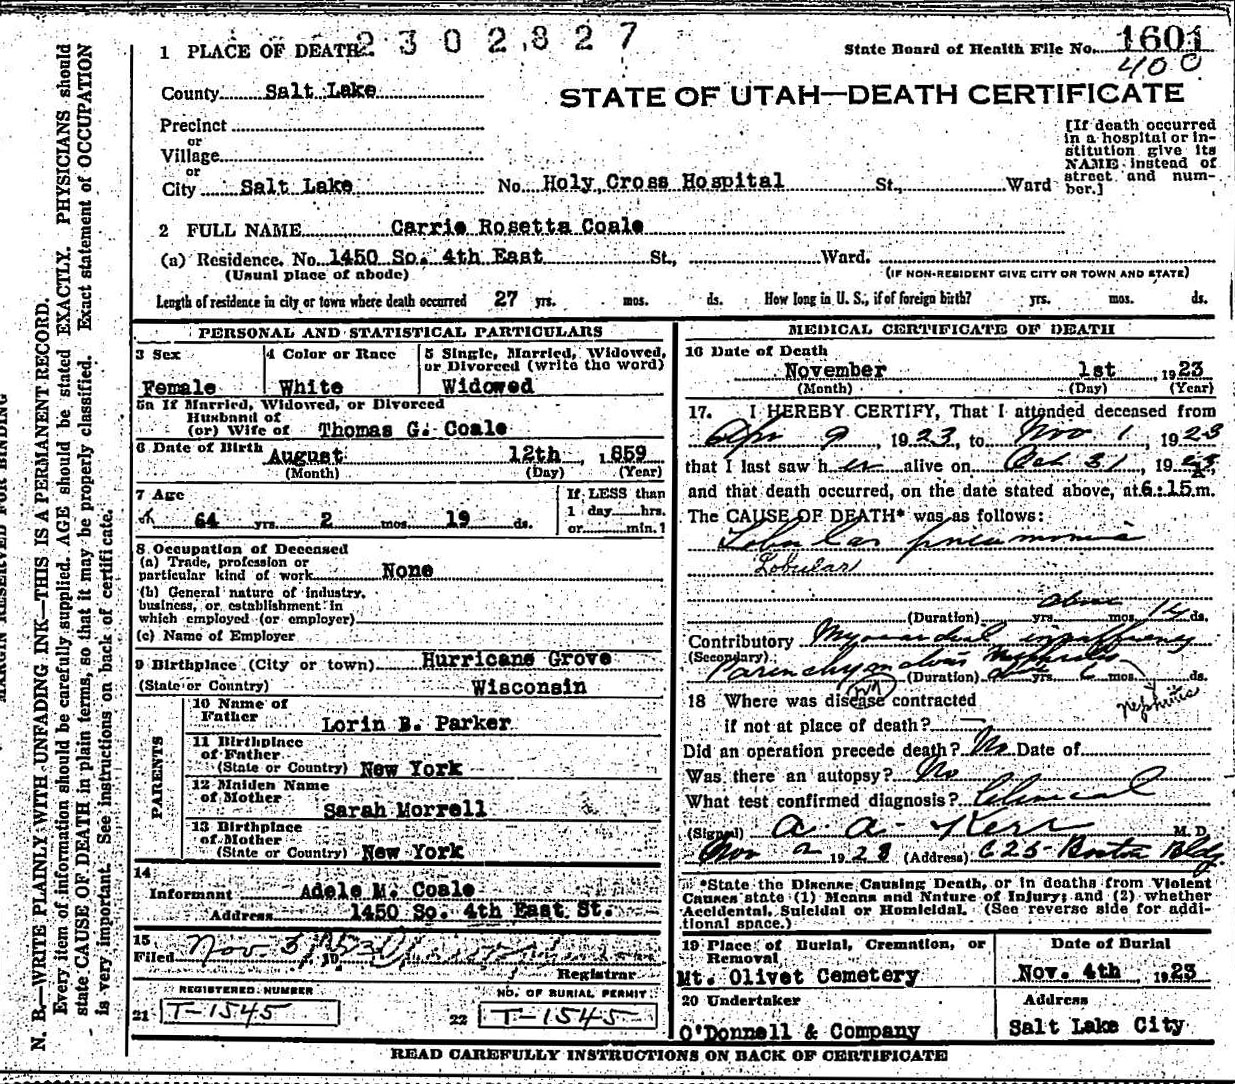 2302827
1 PLACE OF DEATH
State Board of Health File No. 1601
400
County Salt Lake
STATE OF UTAH—DEATH CERTIFICATE
Precinct
or
Village
or
City Salt Lake No. Holy Cross Hospital St., Ward
[If death occurred
in a hospital or in-
stitution give its
NAME instead of
street and num-
ber.]
2 FULL NAME Carrie Rosetta Coale
(a) Residence. No. 1450 So. 4th East St., Ward.
(Usual place of abode) (IF NON-RESIDENT GIVE CITY OR TOWN AND STATE)
Length of residence in city or town where death occurred 27 yrs. mos. ds. How long in U. S., if of foreign birth? yrs. mos. ds.
PERSONAL AND STATISTICAL PARTICULARS
3 Sex 4 Color or Race 5 Single, Married, Widowed,
or Divorced (write the word)
Female White Widowed
5a If Married, Widowed, or Divorced
Husband of
(or) Wife of Thomas G. Coale
6 Date of Birth August 12th, 1859
(Month) (Day) (Year)
7 Age If LESS than
64 yrs. 2 mos. 19 ds. 1 day hrs.
or min.?
8 Occupation of Deceased
(a) Trade, profession or
particular kind of work None
(b) General nature of industry,
business, or establishment in
which employed (or employer)
(c) Name of Employer
9 Birthplace (City or town) Hurricane Grove
(State or Country) Wisconsin
PARENTS
10 Name of
Father Lorin B. Parker
11 Birthplace
of Father
(State or Country) New York
12 Maiden Name
of Mother
Sarah Morrell
13 Birthplace
of Mother
(State or Country) New York
14
Informant Adele M. Coale
Address 1450 So. 4th East St.
15
Filed Nov. 3, 1923
Registrar
REGISTERED NUMBER NO. OF BURIAL PERMIT
21 T-1545 22 T-1545
MEDICAL CERTIFICATE OF DEATH
16 Date of Death
November 1st 1923
(Month) (Day) (Year)
17. I HEREBY CERTIFY, That I attended deceased from
Apr 9, 1923, to Nov 1, 1923
that I last saw her alive on Oct 31, 1923,
and that death occurred, on the date stated above, at 6:15 A m.
The CAUSE OF DEATH* was as follows:
Lobular pneumonia
Lobular
(Duration) yrs. mos. 14 ds.
Contributory Myocardial insufficiency
(Secondary) Parenchymatous Nephritis
(Duration) yrs. 6 mos. ds.
nephritis
18 Where was disease contracted
if not at place of death?
Did an operation precede death? No Date of
Was there an autopsy? No
What test confirmed diagnosis? Clinical
(Signed) A. A. Kerr M. D.
Nov 2 1923 (Address) 625 Boston Bldg.
*State the Disease Causing Death, or in deaths from Violent
Causes state (1) Means and Nature of Injury; and (2) whether
Accidental, Suicidal or Homicidal. (See reverse side for addi-
tional space.)
19 Place of Burial, Cremation, or
Removal
Date of Burial
Mt. Olivet Cemetery Nov. 4th 1923
20 Undertaker Address
O'Donnell & Company Salt Lake City
READ CAREFULLY INSTRUCTIONS ON BACK OF CERTIFICATE
MARGIN RESERVED FOR BINDING
N. B.—WRITE PLAINLY WITH UNFADING INK—THIS IS A PERMANENT RECORD.
Every item of information should be carefully supplied. AGE should be stated EXACTLY. PHYSICIANS should
state CAUSE OF DEATH in plain terms, so that it may be properly classified. Exact statement of OCCUPATION
is very important. See instructions on back of certificate.